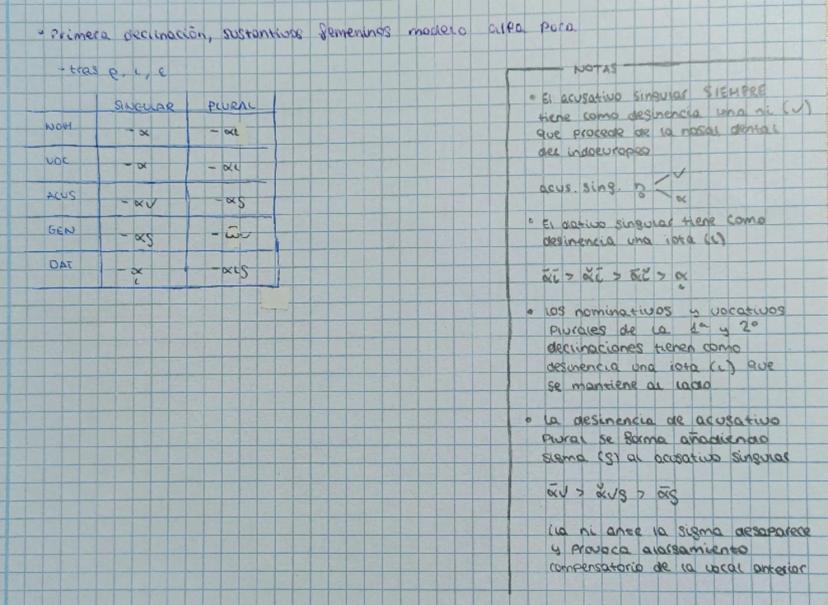 • Primera declinación, sustantivos femeninos modelo alfa pura
- tras ρ, ι, ε
SINGULAR PLURAL
NOM -α -αι
VOC -α -αι
ACUS -αν -ας
GEN -ας -ῶν
DAT -ᾳ -αις
NOTAS
• El acusativo singular SIEMPRE
tiene como desinencia una ni (ν)
que procede de la nasal dental
del indoeuropeo
acus. sing. n̥ < ν
α
• El dativo singular tiene como
desinencia una iota (ι)
ᾱῑ > ᾰῑ > ᾱῐ > ᾳ
• Los nominativos y vocativos
plurales de la 1ª y 2ª
declinaciones tienen como
desinencia una iota (ι) que
se mantiene al lado
• La desinencia de acusativo
plural se forma añadiendo
sigma (ς) al acusativo singular
ᾱν > ᾰνς > ᾱς
(la ni ante la sigma desaparece
y provoca alargamiento
compensatorio de la vocal anterior